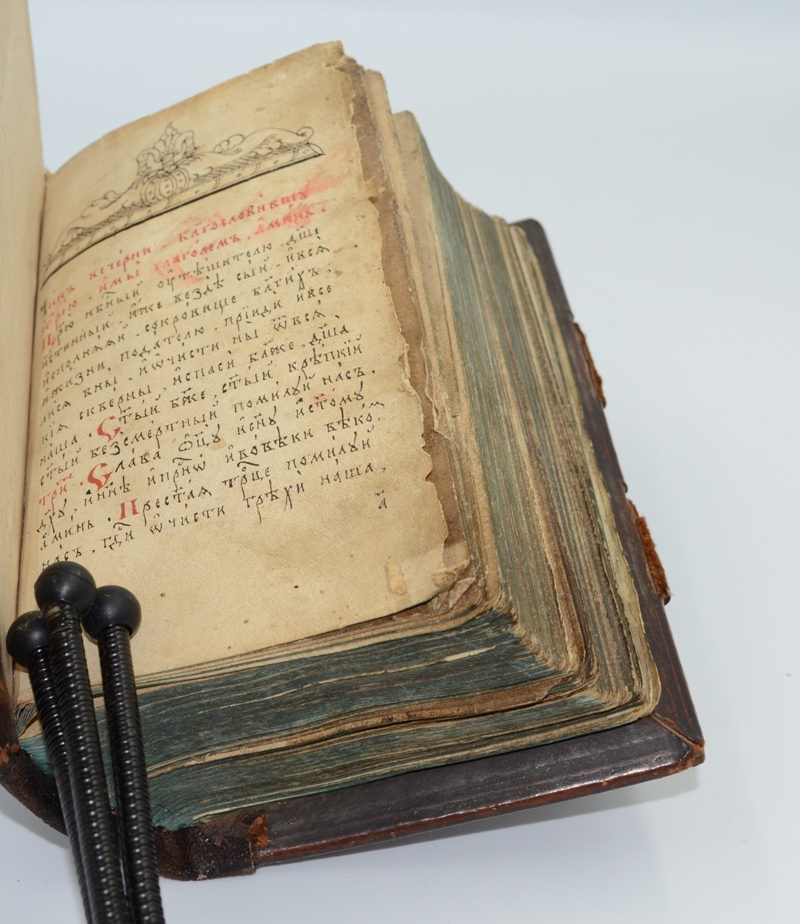 Чи́нъ вечерни . благослови́вшꙋ
іерⷷю . и҆ мы̀ глаго́лемъ . а҆ми́нь .
Цр҃ю нбⷭ҇ный ᲂу҆тѣ́шителю . дш҃е
и҆стинный . и҆́же вездѣ̀ сы́й . и҆вся҄
и҆сполнѧ́ѧй . сокро́вище благи́хъ .
и҆жи́зни пода́телю . прїидѝ и҆все
ли́сѧ вны̀ . и҆ѡ҆чи́сти ны̀ ѿ всѧ́
кїѧ скве́рны . и҆спасѝ бл҃же . дш҃а
на́ша . Ст҃ы́й бж҃е . ст҃ы́й крѣ́пкїй
ст҃ы́й безсме́ртный поми́лꙋй на́съ .
три́ . Сла́ва ѻ҆ц҃ꙋ̀ и҆сн҃ꙋ и҆ст҃о́мꙋ
дх҃ꙋ . и҆ны́нѣ и҆при́снѡ и҆вовѣ́ки вѣ́ко́
а҆ми́нь . Прест҃а́ѧ трⷪ҇це поми́лꙋй
на́съ . гдⷭ҇и ѡ҆чи́сти грѣхѝ на́ша .
а҃